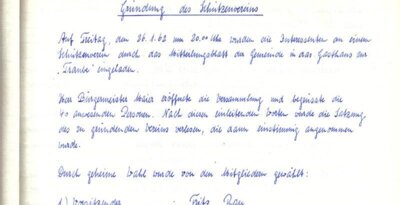 Gründung des Schützenvereins
Auf Freitag, den 26.1.62 um 20.00 Uhr wurden die Interessenten an einem
Schützenverein durch das Mitteilungsblatt der Gemeinde in das Gasthaus zur
"Traube" eingeladen.
Herr Bürgermeister Maier eröffnete die Versammlung und begrüsste die
40 anwesenden Personen. Nach diesen einleitenden Worten wurde die Satzung
des zu gründenden Vereins verlesen, die dann einstimmig angenommen
wurde.
Durch geheime Wahl wurde von den Mitgliedern gewählt:
1) Vorsitzender Fritz